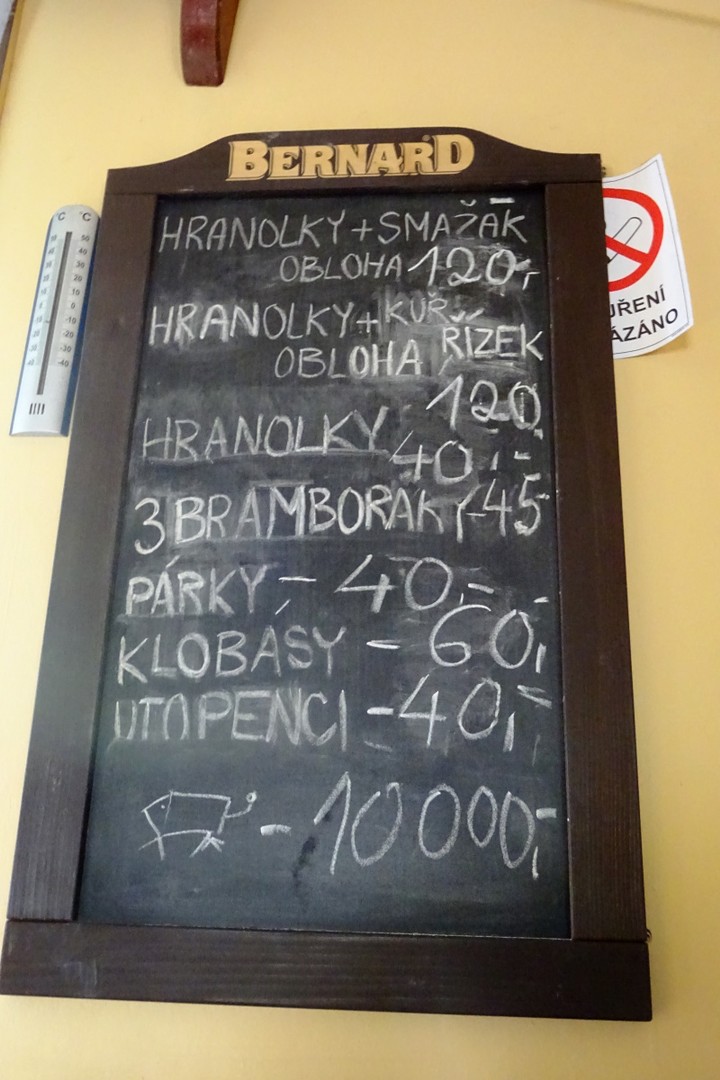 BERNARD
HRANOLKY + SMAŽÁK
OBLOHA 120,-
HRANOLKY + KUŘ.
ŘÍZEK
OBLOHA
120,-
HRANOLKY - 40,-
3 BRAMBORÁKY - 45,-
PÁRKY - 40,-
KLOBÁSY - 60,-
UTOPENCI - 40,-
- 10000,-
°C °C
50
40
30
20
10
0
-10
-20
-30
-40